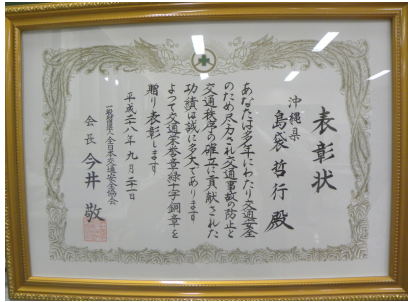 表彰状
沖縄県
島袋哲行殿
あなたは多年にわたり交通安全
のため尽力され交通事故の防止と
交通秩序の確立に貢献された
功績は誠に多大であります
よって交通栄誉章緑十字銅章を
贈り表彰します
平成二八年九月二十一日
一般財団法人全日本交通安全協会
会長 今井敬